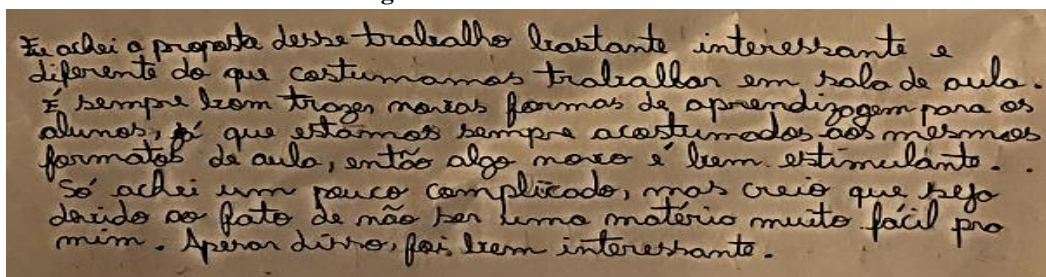 Eu achei a proposta desse trabalho bastante interessante e
diferente do que costumamos trabalhar em sala de aula.
É sempre bom trazer novas formas de aprendizagem para os
alunos, já que estamos sempre acostumados aos mesmos
formatos de aula, então algo novo é bem estimulante.
Só achei um pouco complicado, mas creio que seja
devido ao fato de não ser uma matéria muito fácil pra
mim. Apesar disso, foi bem interessante.